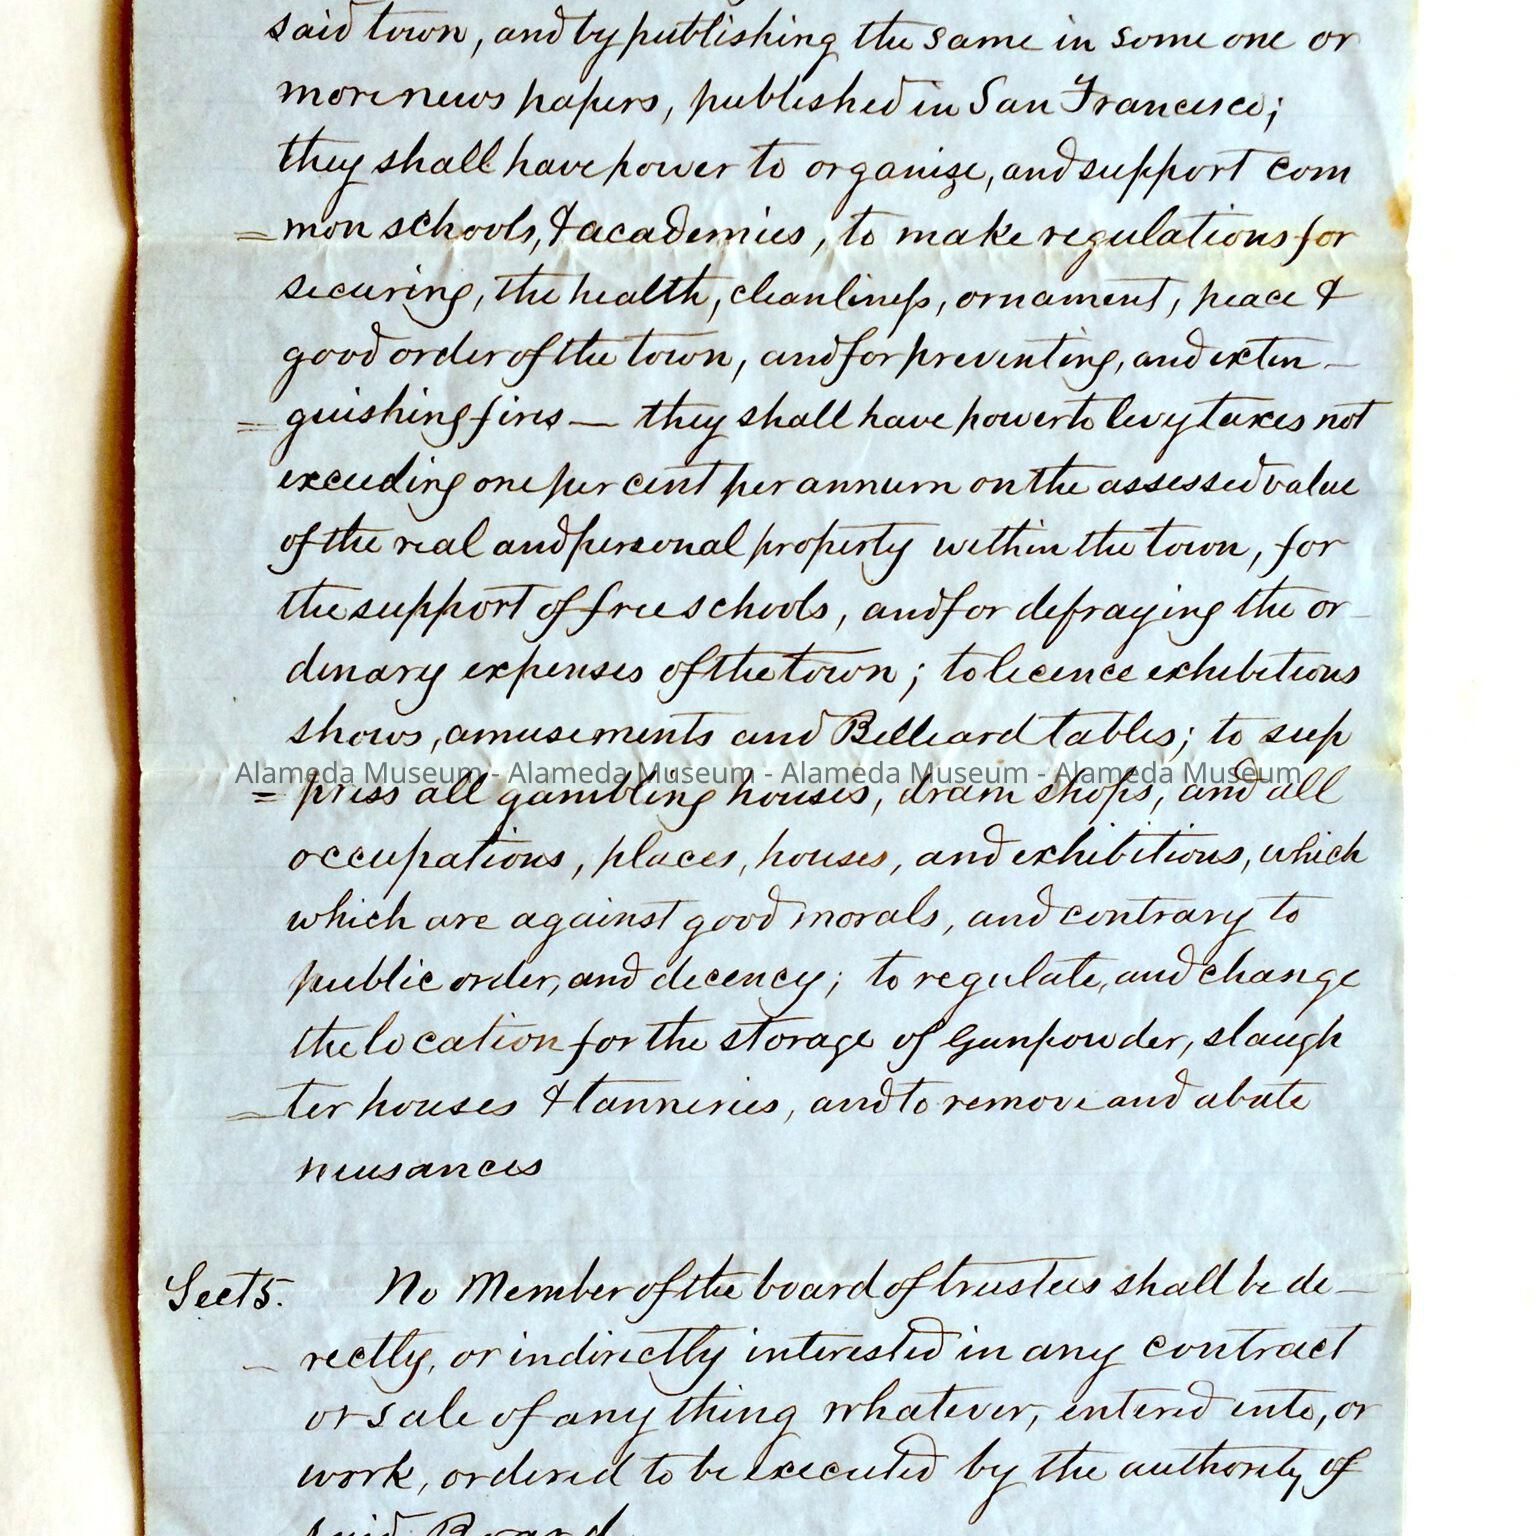 said town, and by publishing the same in some one or
more news papers, published in San Francisco;
they shall have power to organise, and support com
=mon schools, & academies, to make regulations for
securing, the health, cleanliness, ornament, peace &
good order of the town, and for preventing, and extin-
=guishing fires — they shall have power to levy taxes not
exceeding one per cent per annum on the assessed value
of the real and personal property within the town, for
the support of free schools, and for defraying the or-
dinary expenses of the town; to licence exhibitions
shows, amusements and Billiard tables; to sup
Alameda Museum - Alameda Museum - Alameda Museum - Alameda Museum
=press all gambling houses, dram shops, and all
occupations, places, houses, and exhibitions, which
which are against good morals, and contrary to
public order, and decency; to regulate, and change
the location for the storage of Gunpowder, slaugh
=ter houses & tanneries, and to remove and abate
nuisances
Sect 5. No Member of the board of trustees shall be di-
-rectly, or indirectly interested in any contract
or sale of any thing whatever, entered into, or
work, ordered to be executed by the authority of
said Board.